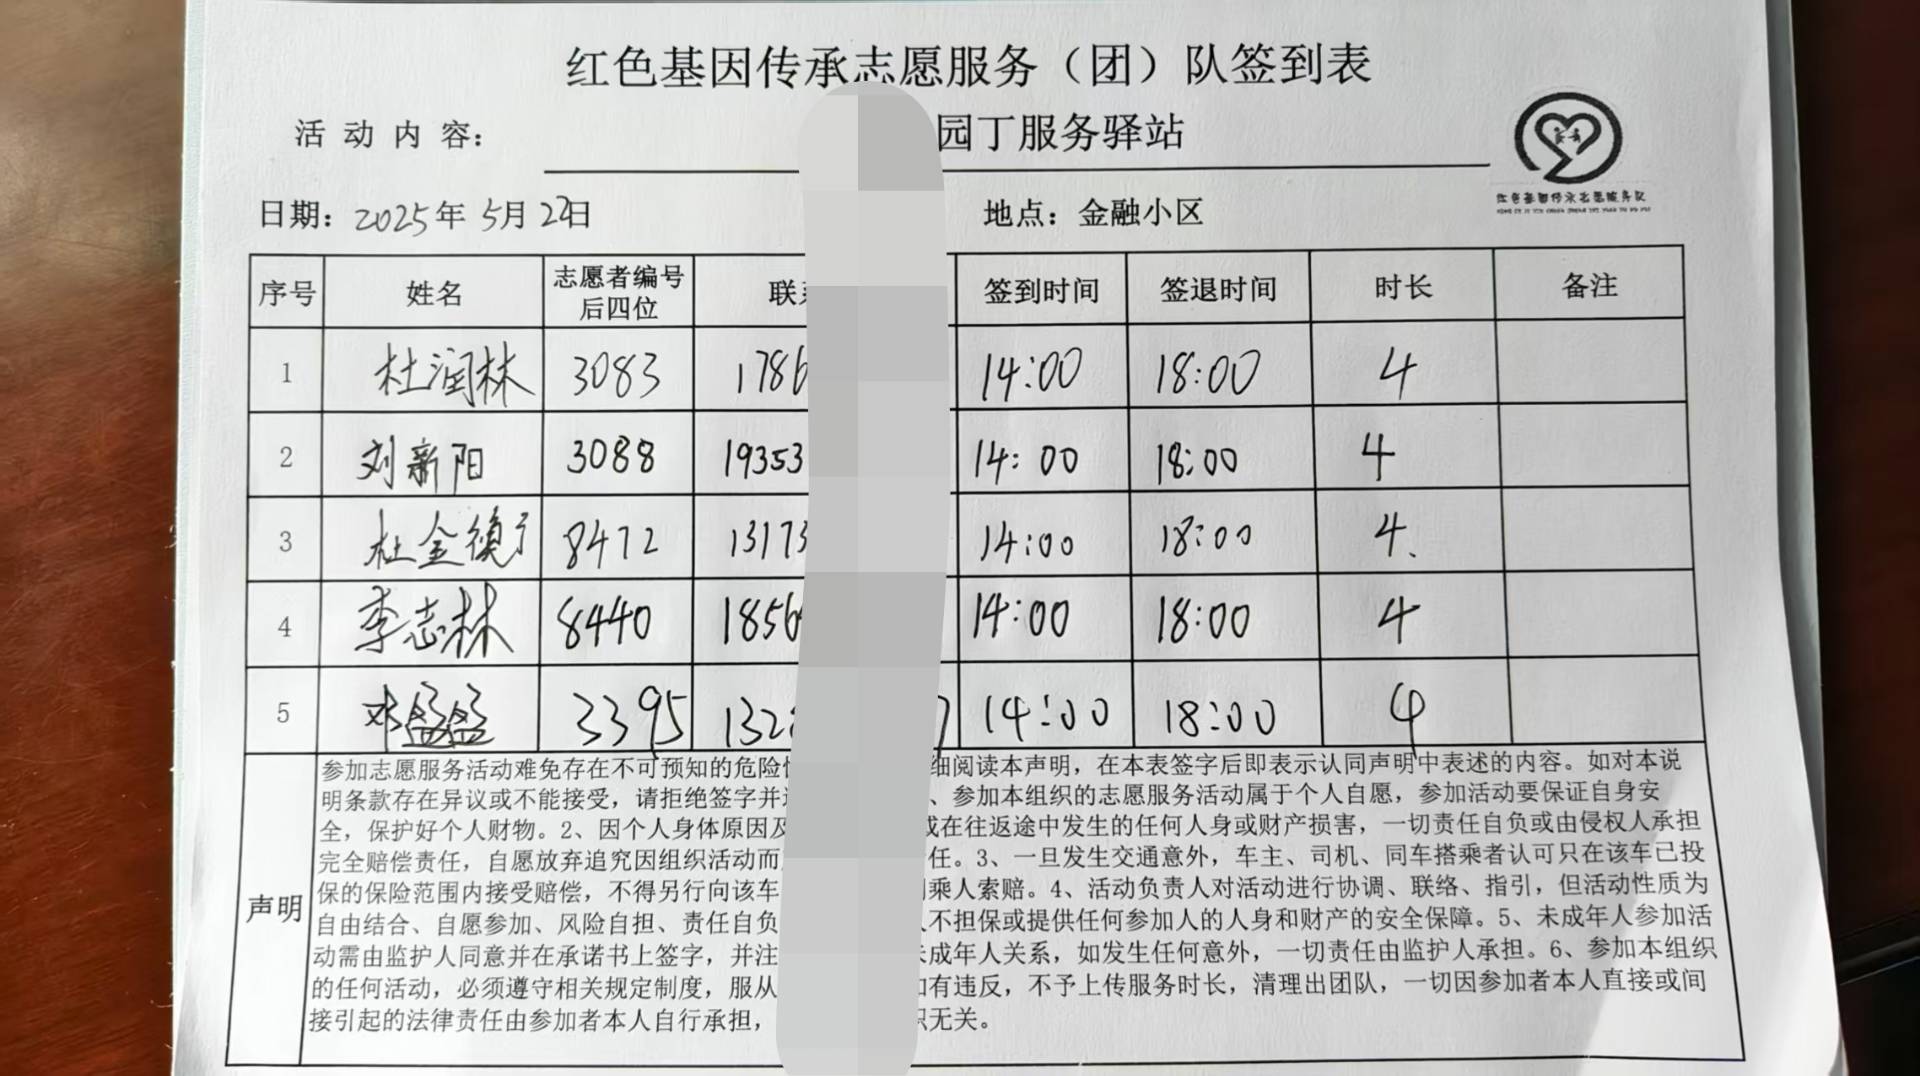 红色基因传承志愿服务（团）队签到表
活动内容： 园丁服务驿站
日期：2025年5月22日 地点：金融小区
红色基因传承志愿服务队
序号 姓名 志愿者编号后四位 联系 签到时间 签退时间 时长 备注
1 杜润林 3083 1786 14:00 18:00 4
2 刘新阳 3088 19353 14:00 18:00 4
3 杜金 8472 13173 14:00 18:00 4.
4 李志林 8440 1856 14:00 18:00 4
5 邓盈盈 3395 132 14:00 18:00 4
声明
参加志愿服务活动难免存在不可预知的危险 细阅读本声明，在本表签字后即表示认同声明中表述的内容。如对本说
明条款存在异议或不能接受，请拒绝签字并 、参加本组织的志愿服务活动属于个人自愿，参加活动要保证自身安
全，保护好个人财物。2、因个人身体原因及 或在往返途中发生的任何人身或财产损害，一切责任自负或由侵权人承担
完全赔偿责任，自愿放弃追究因组织活动而 任。3、一旦发生交通意外，车主、司机、同车搭乘者认可只在该车已投
保的保险范围内接受赔偿，不得另行向该车 乘人索赔。4、活动负责人对活动进行协调、联络、指引，但活动性质为
自由结合、自愿参加、风险自担、责任自负 人不担保或提供任何参加人的人身和财产的安全保障。5、未成年人参加活
动需由监护人同意并在承诺书上签字，并注 未成年人关系，如发生任何意外，一切责任由监护人承担。6、参加本组织
的任何活动，必须遵守相关规定制度，服从 如有违反，不予上传服务时长，清理出团队，一切因参加者本人直接或间
接引起的法律责任由参加者本人自行承担， 织无关。